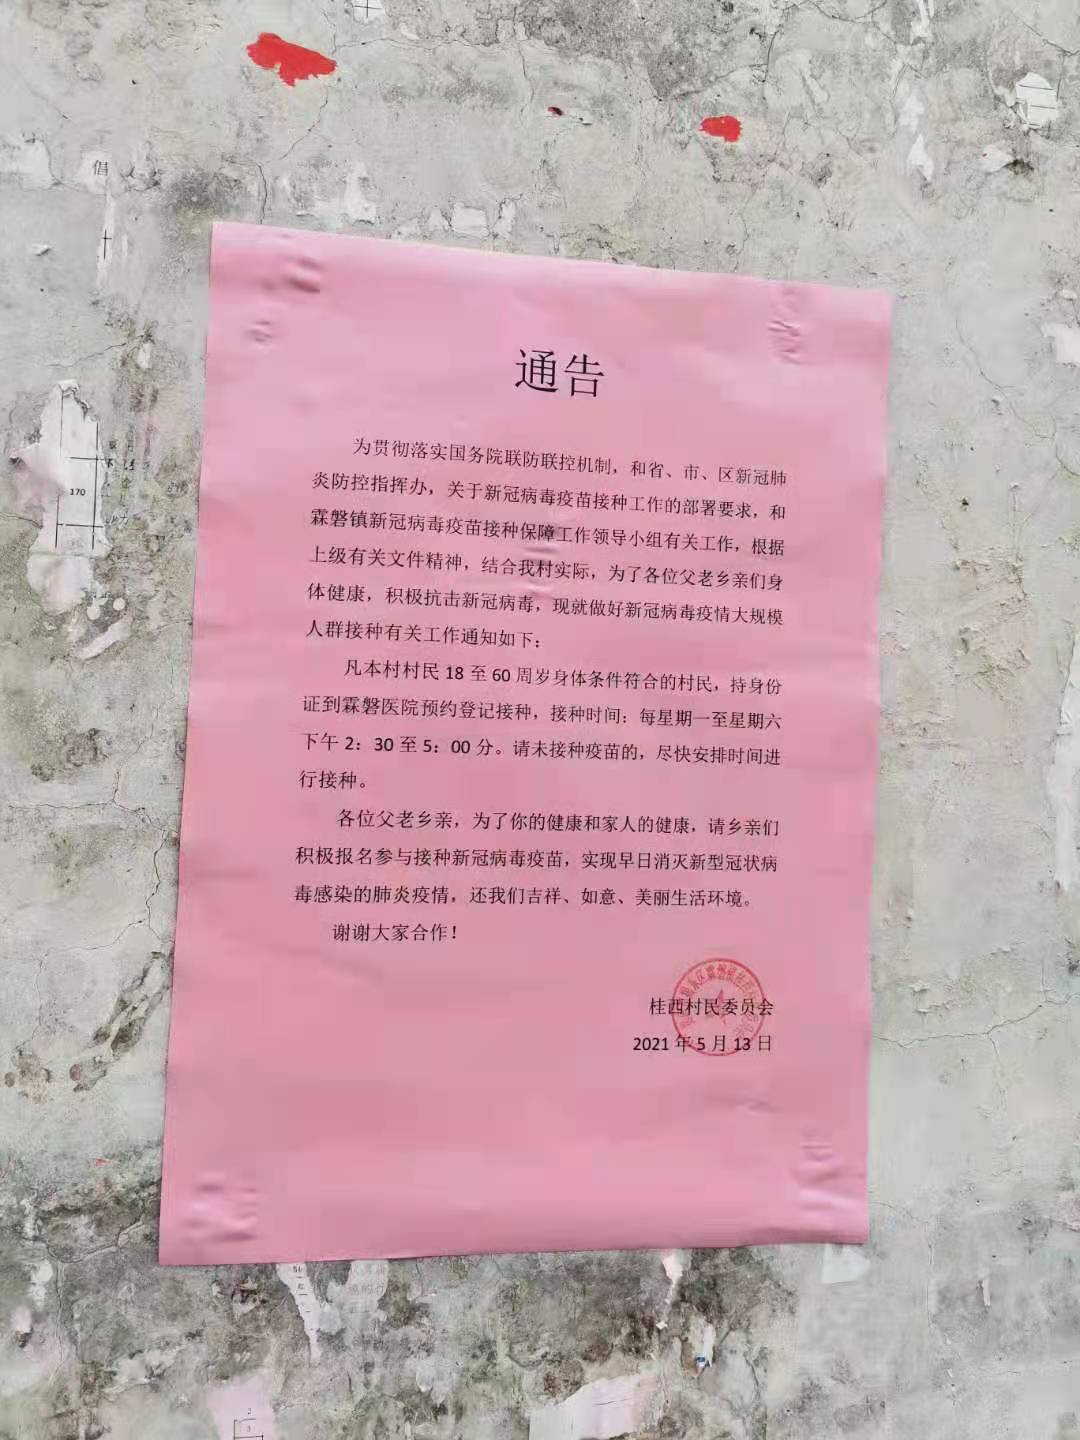 倡
170
通告
为贯彻落实国务院联防联控机制，和省、市、区新冠肺
炎防控指挥办，关于新冠病毒疫苗接种工作的部署要求，和
霖磐镇新冠病毒疫苗接种保障工作领导小组有关工作，根据
上级有关文件精神，结合我村实际，为了各位父老乡亲们身
体健康，积极抗击新冠病毒，现就做好新冠病毒疫情大规模
人群接种有关工作通知如下：
凡本村村民 18 至 60 周岁身体条件符合的村民，持身份
证到霖磐医院预约登记接种，接种时间：每星期一至星期六
下午 2：30 至 5：00 分。请未接种疫苗的，尽快安排时间进
行接种。
各位父老乡亲，为了你的健康和家人的健康，请乡亲们
积极报名参与接种新冠病毒疫苗，实现早日消灭新型冠状病
毒感染的肺炎疫情，还我们吉祥、如意、美丽生活环境。
谢谢大家合作！
桂西村民委员会
2021 年 5 月 13 日